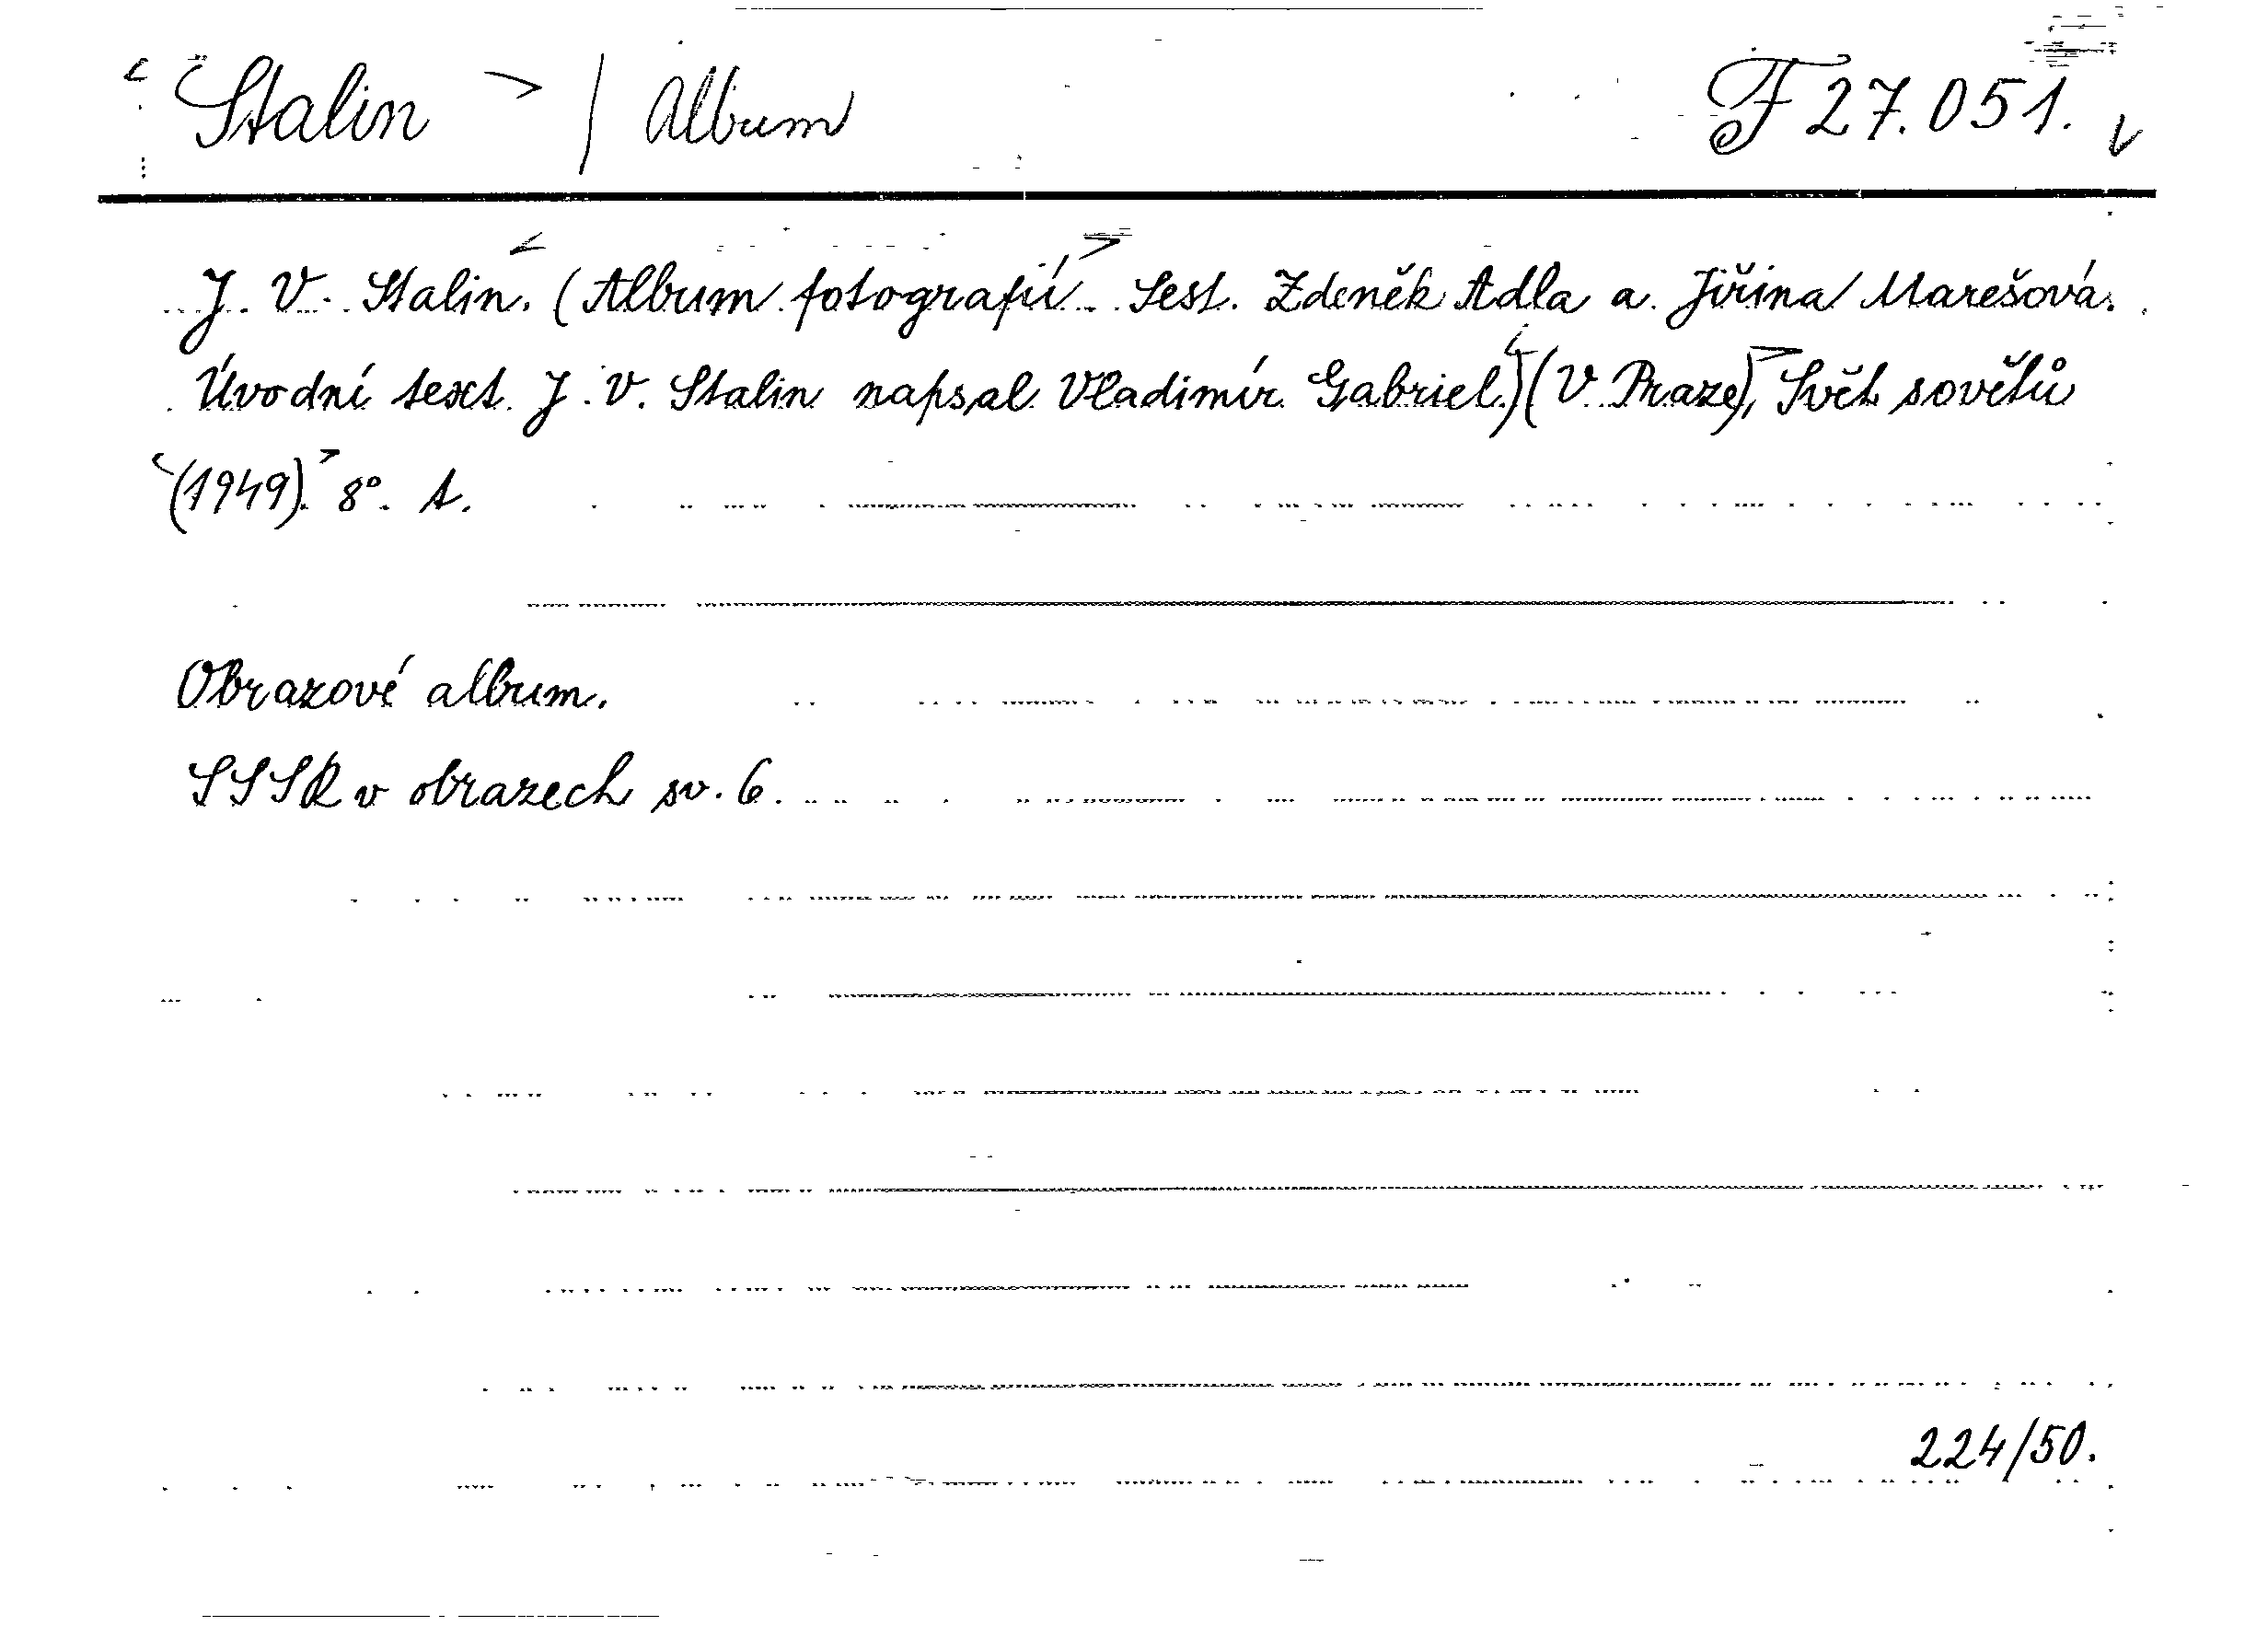 < Stalin > / Album F 27.051. v
J. V. Stalin. < (Album fotografií > Sest. Zdeněk Adla a Jiřina Marešová.
Úvodní text J. V. Stalin napsal Vladimír Gabriel.) < (V Praze) >, Svět sovětů
< (1949). > 8°. A.
Obrazové album.
SSSR v obrazech sv. 6.
224/50.